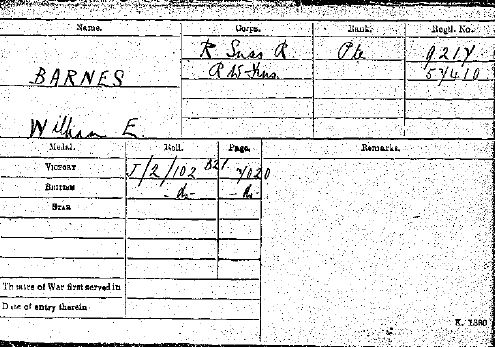 Name. Corps. Rank. Regtl. No.
R Suss R Pte 9217
BARNES R W Fus. 57410
William E.
Medal. Roll. Page. Remarks.
VICTORY J/2/102 B21 7020
BRITISH - do - - do -
STAR
Theatre of War first served in
Date of entry therein
K. 1380